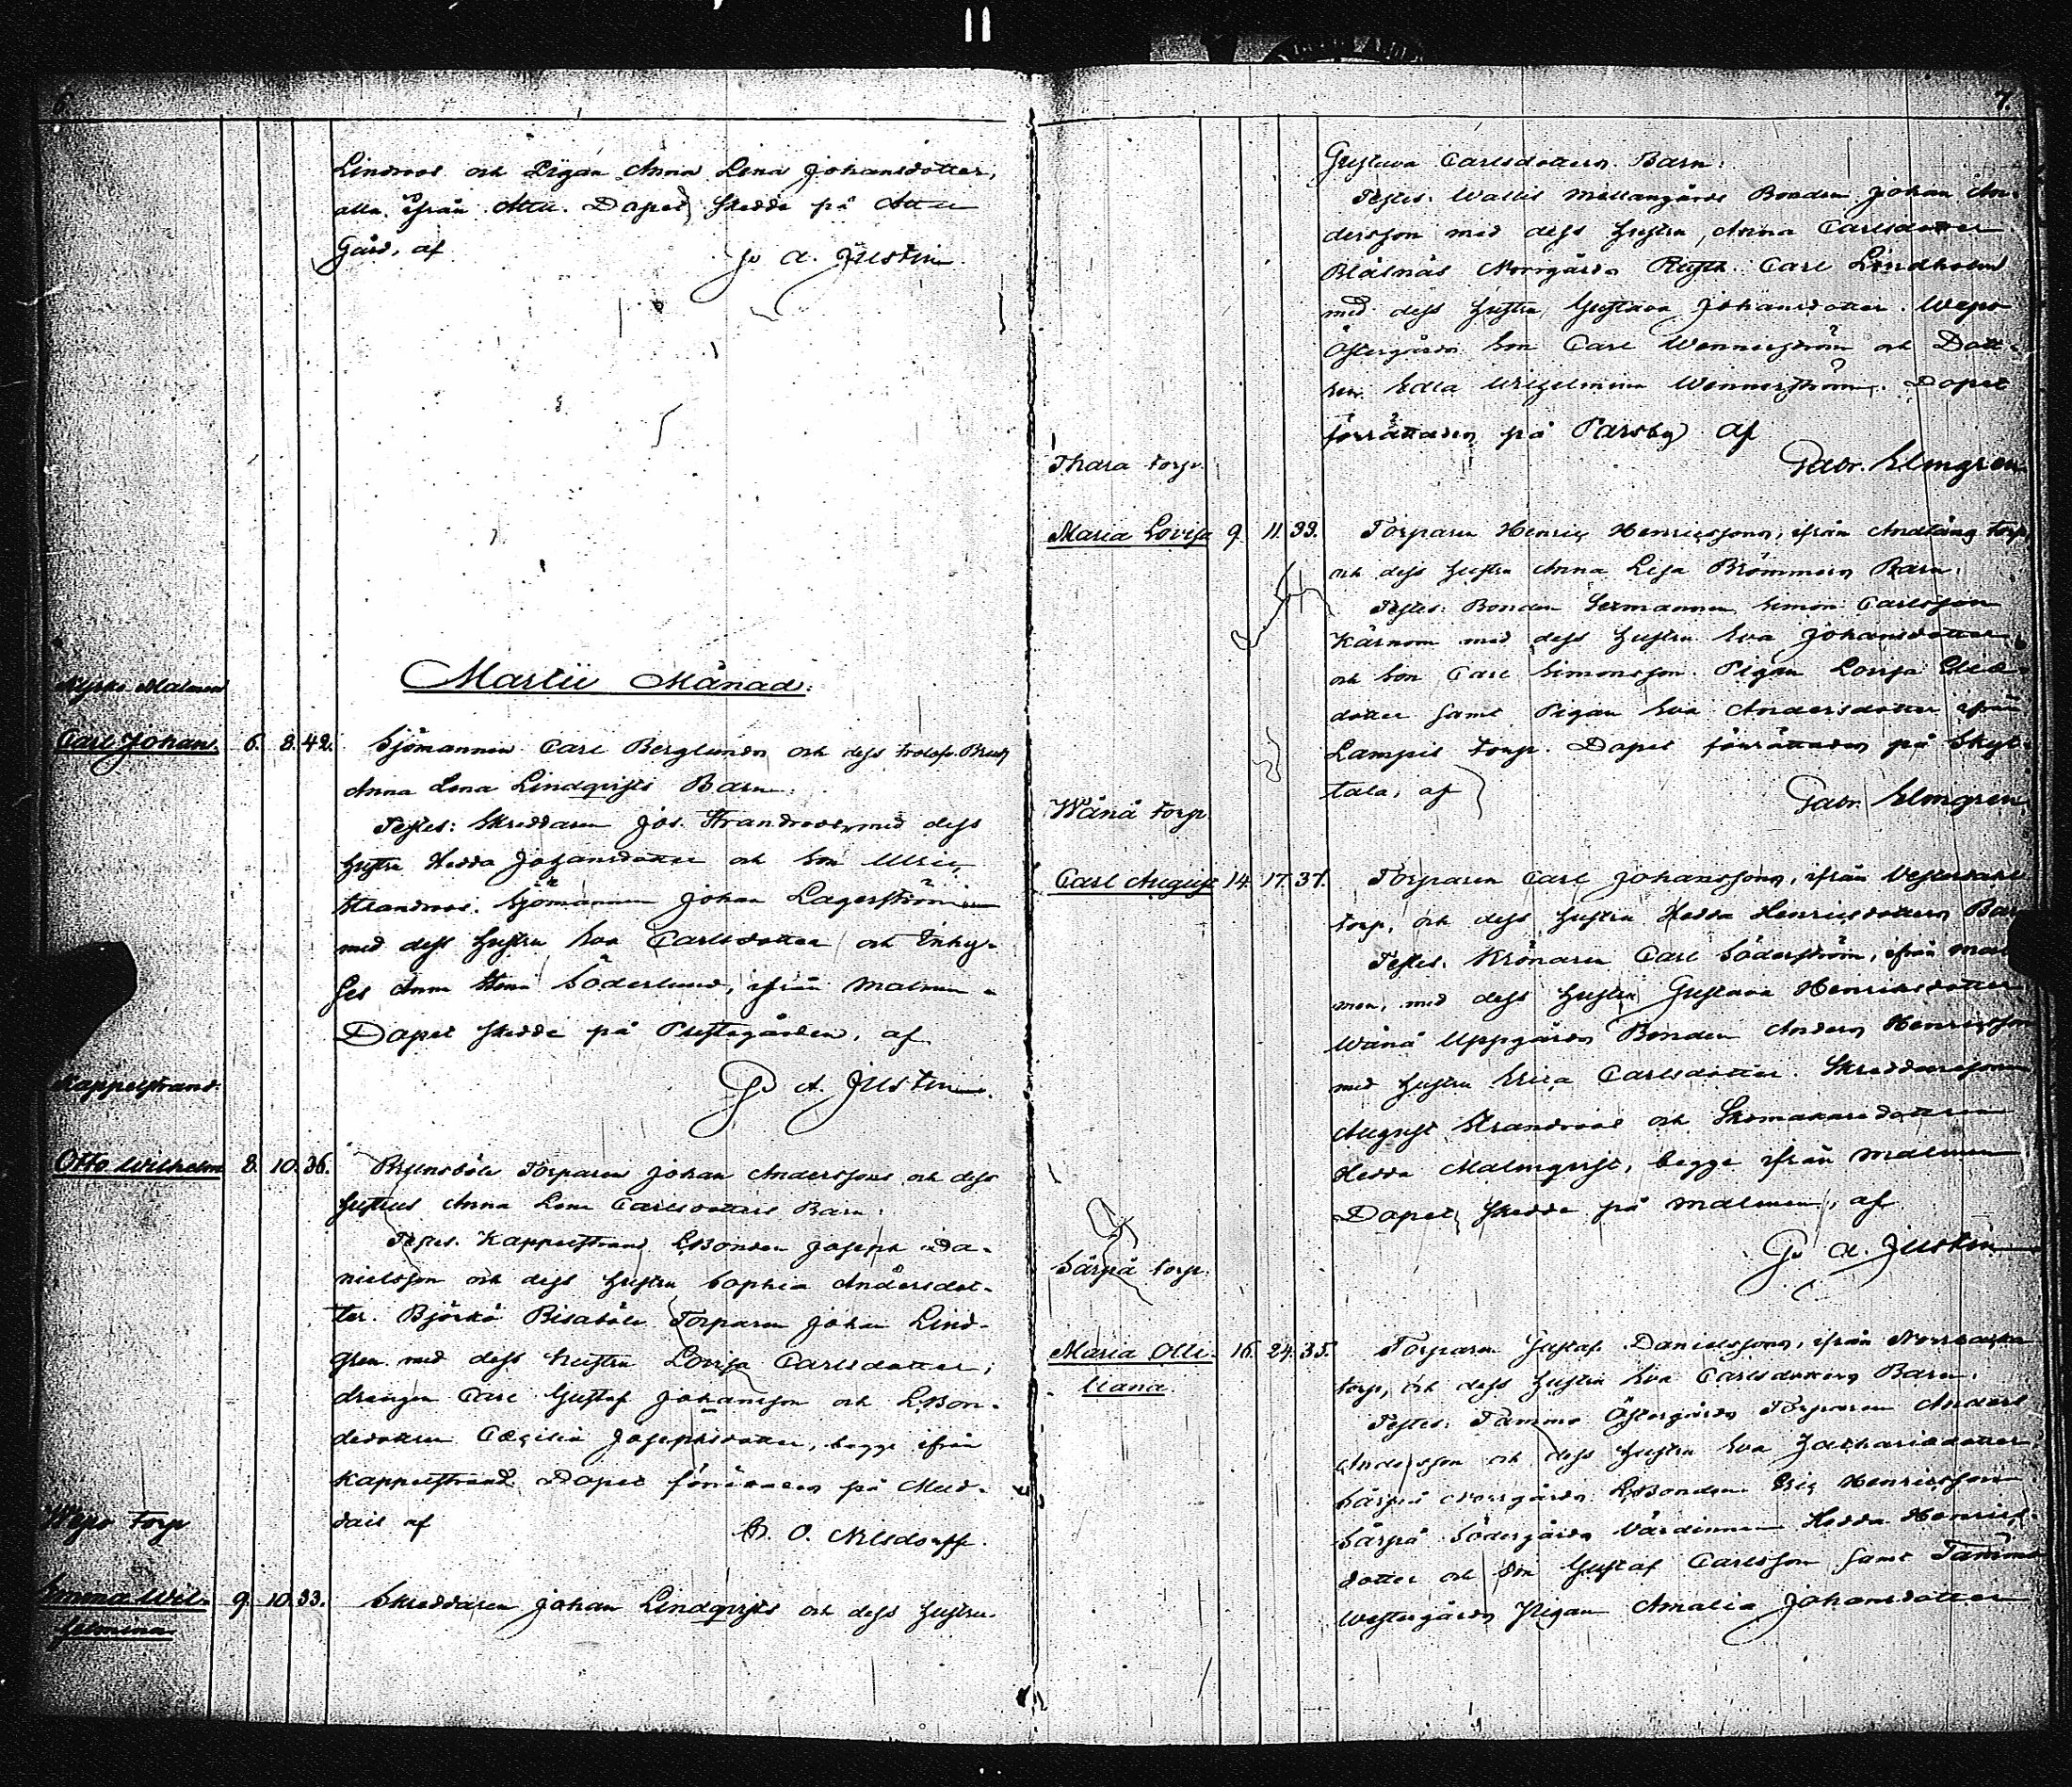 6.
Lindroos och Pigan Anna Lena Johansdotter,
alla ifrån Attu. Dopet skedde på Attu
Gård, af
G. A. Justin.
Martii Månad.
Kyrko Malmen
Carl Johan. 6. 8. 42. Sjömannen Carl Berglunds och dess trolof. Brud
Anna Lena Lindqvists Barn.
Testes: Skreddaren Jos. Strandroos med dess
hustru Hedda Johansdotter och Son Ulric
Strandroos. Sjömannen Johan Lagerström
med dess hustru Eva Carlsdotter och Inhy-
ses Anna Stina Söderlund, ifrån Malmen.
Dopet skedde på Prestegården, af
G. A. Justin.
Kappelstrand.
Otto Wilhelm 8. 10. 36. Torparen Johan Anderssons och dess
hustrus Anna Lena Carlsdotters Barn.
Testes. Kappelstrand LBonden Joseph Da-
nielsson och dess hustru Sophia Andersdot-
ter. Björkö Bisaböle Torparen Johan Lind-
gren med dess hustru Lovisa Carlsdotter,
drengen Carl Gustaf Johansson och LBon-
dedottren Cæcilia Josephsdotter, begge ifrån
Kappelstrand. Dopet förrättades på Mud-
dais af
G. O. Nilsdorff.
Wepo torp
Emma Wil- 9. 10. 33. Skreddaren Johan Lindqvists och dess hustru
helmina.
7.
Gustava Carlsdotters Barn.
Testes. Wallis Mellangårds Bonden Johan An-
dersson med dess hustru Anna Carlsdotter
Bläsnäs Norrgårds Rusth. Carl Lindholm
med dess hustru Gustava Johansdotter. Wepo
Östergårds Son Carl Wennerström och Dott-
ren Edla Wilhelmina Wennerström. Dopet
förrättades på Parsby af
Gabr. Elmgren.
Thara torp.
Maria Lovisa 9. 11. 33. Torparen Henric Henricssons, ifrån Andläng torp,
och dess hustru Anna Lisa Brömmers Barn.
Testes. Bonden Simon Carlsson
Kärnom med dess hustru Eva Johansdotter
och Son Carl Simonsson. Pigan Lovisa
dotter samt Pigan Eva Andersdotter ifrån
Lampis torp. Dopet förrättades på Skyt-
tala, af
Gabr. Elmgren.
Wånå torp
Carl August 14. 17. 37. Torparen Carl Johanssons, ifrån
torp, och dess hustru Hedda Henricsdotters Barn
Testes. Krönaren Carl Söderström, ifrån Mal-
men, med dess hustru Gustava Henricsdotter
Wånå Uppgårds Bonden Anders Henricsson
med hustru Erica Carlsdotter. Skreddaresonen
August Strandroos och Skomakaredottren
Hedda Malmqvist, begge ifrån Malmen
Dopet skedde på Malmen, af
G. A. Justin
Särpä torp.
Maria Olli- 16. 24. 35. Torparen Gustaf Danielssons, ifrån
liana. torp, och dess hustru Eva Carlsdotters Barn.
Testes: Tammo Östergårds Torparen Anders
Andersson och dess hustru Eva Zachariædotter,
Särpä Norrgårds LBonden Eric Henricsson
Särpä Södergårds Värdinnan Hedda Henrics-
dotter och Son Gustaf Carlsson samt Tammo
Westergårds Pigan Amalia Johansdotter